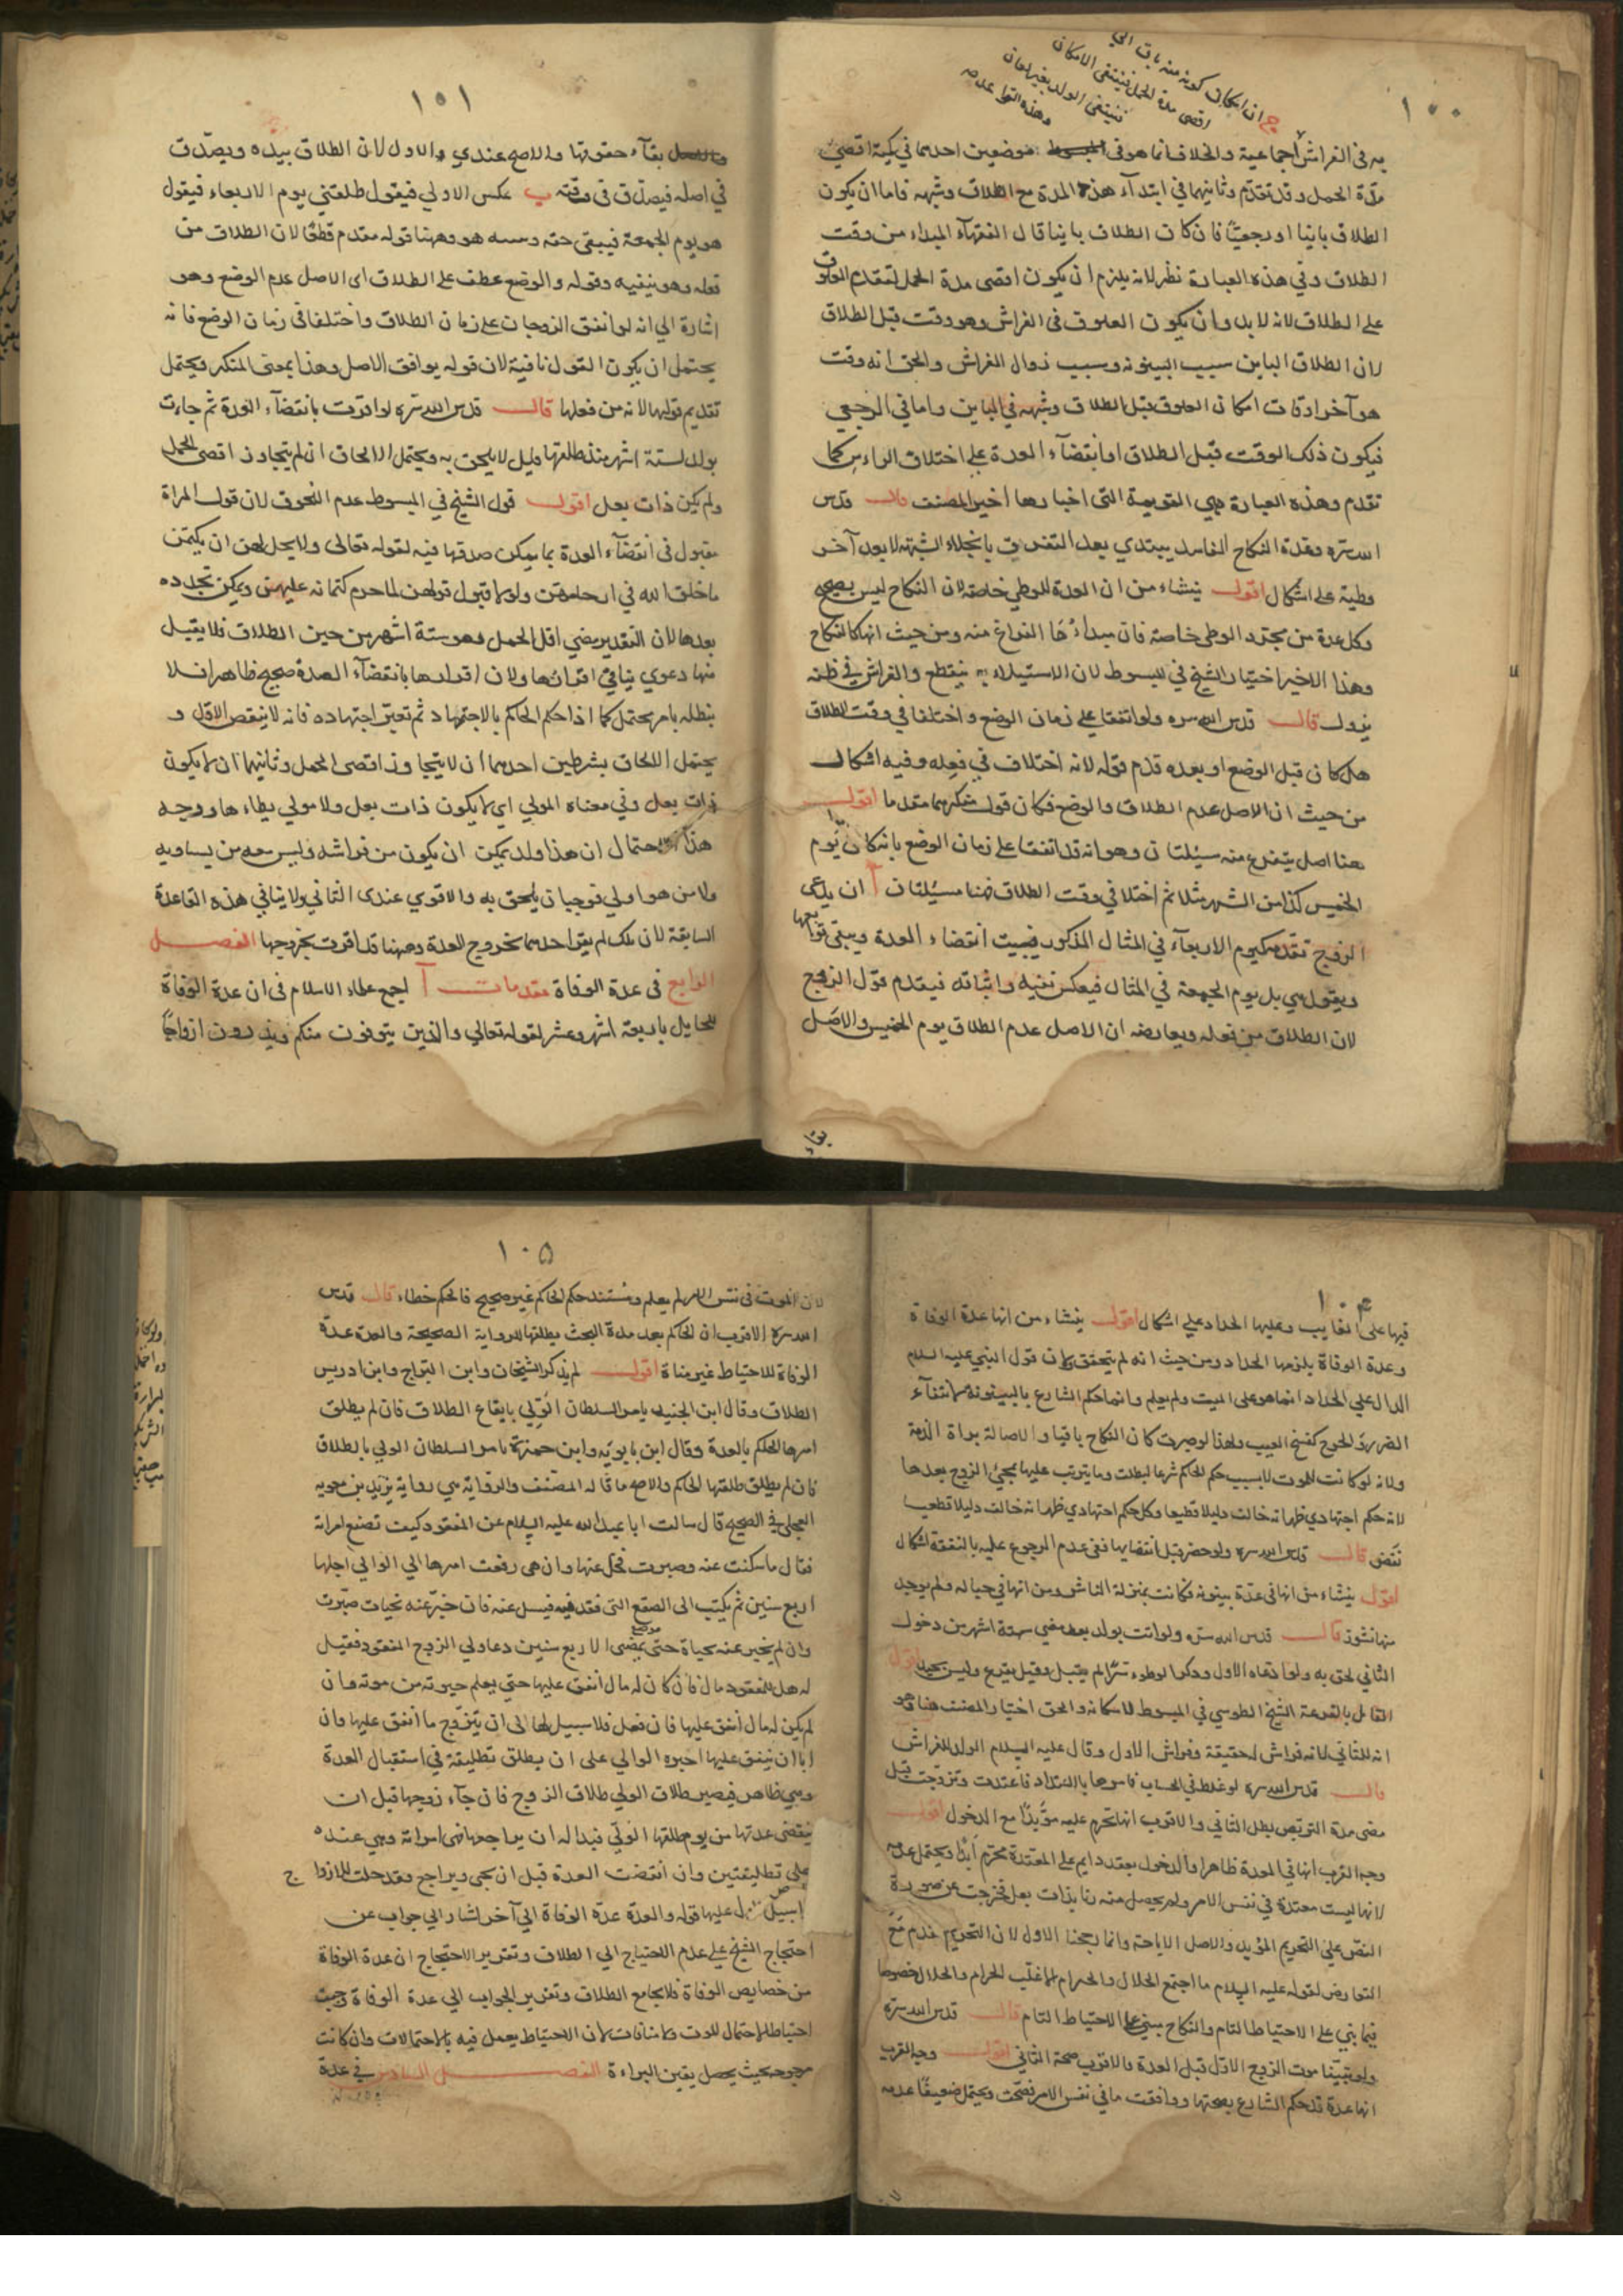 ١٠٠
ج ان امكان كونه منه باق الي
اقصى مدة الحمل فينتفى الامكان
فينتفى الولد بغير لعان
وهذه القواعد
به فى الفراش اجماعية والخلاف انما هو فى موضعين احدهما في كمية اقصى
مدة الحمل وقد تقدم وثانيهما في ابتدآء هذه المدة مع الطلاق وشبهه فاما ان يكون
الطلاق باينا او رجعيا فان كان الطلاق باينا قال الفقهآء المبداء من وقت
الطلاق وفي هذه العبارة نظر لانه يلزم ان يكون اقصى مدة الحمل لتقدم العلوق
على الطلاق لانه لا بد وان يكون العلوق فى الفراش وهو وقت قبل الطلاق
لان الطلاق الباين سبب البينونة وسبب زوال الفراش والحق انه وقت
هو آخر اوقات امكان العلوق قبل الطلاق وشبهه في الباين واما في الرجعي
فيكون ذلك الوقت قبل الطلاق او انقضآء العدة على اختلاف الراءين كما
تقدم وهذه العبارة هي القويمة التى اختارها اخير المصنف قال قدس
الله سره وعدة النكاح الفاسد يبتدي بعد التفريق بانجلاء الشبهة لا بعد آخر
وطية على اشكال اقول ينشاء من ان العدة للوطي خاصة لان النكاح ليس بصحيح
وكل عدة من مجرد الوطى خاصة فان مبداءها الفراغ منه ومن حيث انها كالنكاح
وهذا الاخير اختيار الشيخ في المبسوط لان الاستيلاء به ينقطع والفراش في ظنه
يزول قال قدس الله سره ولو اتفقا على زمان الوضع واختلفا في وقت الطلاق
هل كان قبل الوضع او بعده قدم قوله لانه اختلاف في فعله وفيه اشكال
من حيث ان الاصل عدم الطلاق والوضع فكان قول منكرهما مقدما اقول
هنا اصل يتفرع منه مسئلتان وهو انه قد اتفقا على زمان الوضع بانه كان يوم
الخميس كذا من الشهر مثلا ثم اختلفا في وقت الطلاق فهنا مسئلتان آ ان يدعى
الزوج تقدمه كيوم الاربعآء في المثال المذكور فيبيت انقضاء العدة ويبقى توابعها
ويقول هي بل يوم الجمعة في المثال فيعكس نفيه واثباته فيقدم قول الزوج
لان الطلاق من فعله ويعارضه ان الاصل عدم الطلاق يوم الخميس والاصل
بقآء
١٠١
بقآء حقوقها والاصح عندي الاول لان الطلاق بيده ويصدق
في اصله فيصدق فى وقته ب عكس الاولى فيقول طلقتني يوم الاربعاء فيقول
هو يوم الجمعة فيبقى حقه وههنا قوله مقدم قطعا لان الطلاق من
فعله وهو ينفيه وقوله والوضع عطف على الطلاق اى الاصل عدم الوضع وهو
اشارة الي انه لو اتفق الزوجان على زمان الطلاق واختلفا فى زمان الوضع فانه
يحتمل ان يكون القول نافية لان قوله يوافق الاصل وهذا بمعنى المنكر ويحتمل
تقديم قولها لانه من فعلها قال قدس الله سره لو اقرت بانقضآء العدة ثم جاءت
بولد لستة اشهر منذ طلقها قيل لا يلحق به ويحتمل الالحاق ان لم يتجاوز اقصى الحمل
ولم يكن ذات بعل اقول قول الشيخ في المبسوط عدم اللحوق لان قول المراة
مقبول فى انقضآء العدة بما يمكن صدقها فيه لقوله تعالى ولا يحل لهن ان يكتمن
ما خلق الله في ارحامهن ولولا قبول قولهن لما حرم كتمانه عليهن ويمكن تجدده
بعدها لان التقدير مضي اقل الحمل وهو ستة اشهر من حين الطلاق فلا يقبل
منها دعوي ينافي اقرارها ولان اقرارها بانقضآء العدة صحيح ظاهرا فلا
يبطله بامر محتمل كما اذا حكم الحاكم بالاجتهاد ثم تغير اجتهاده فانه لا ينقض الاول و
يحتمل الالحاق بشرطين احدهما ان لا يتجاوز اقصى الحمل وثانيهما ان لا يكون
ذات بعل وفي معناه المولي اى لا يكون ذات بعل ولا مولي يطاءها ووجه
هذا الاحتمال ان هذا ولد يمكن ان يكون من فراشه وليس معه من يساويه
ولا من هو اولي فوجب ان يلحق به والاقوي عندى الثاني ولا ينافي هذه القاعدة
السابقة لان تلك لم يقر احدهما بخروج العدة وههنا قد اقرت بخروجها الفصل
الرابع فى عدة الوفاة مقدمات آ اجمع علماء الاسلام فى ان عدة الوفاة
للحايل باربعة اشهر وعشر لقوله تعالي والذين يتوفون منكم ويذرون ازواجا
١٠٤
فيها على الغايب وعليها الحداد على اشكال اقول ينشاء من انها عدة الوفاة
وعدة الوفاة يلزمها الحداد ومن حيث انه لم يتحقق ولان قول النبي عليه السلام
الدال علي الحداد انما هو على الميت ولم يعلم وانما حكم الشارع بالبينونة لانتفآء
الضرر والحرج كفسخ العيب ولهذا لو صبرت كان النكاح باقيا والاصالة براة الذمة
ولانه لو كانت للموت لا بسبب حكم الحاكم شرعا لبطلت وما يترتب عليها بمجئ الزوج بعدها
لانه حكم اجتهادي ظهر انه خالف دليلا قطعيا وكل حكم اجتهادي ظهر انه خالف دليلا قطعيا
نقض قال قدس الله سره ولو حضر قبل انقضايها ففى عدم الرجوع عليه بالنفقة اشكال
اقول ينشاء من انها فى عدة بينونة فكانت بمنزلة الناشز ومن انها في حباله ولم يوجد
منها نشوز قال قدس الله سره ولو اتت بولد بعد مضي ستة اشهر من دخول
الثاني لحق به ولو ادعاه الاول وذكر الوطء سرا لم يقبل وقيل يقرع وليس بجيد اقول
القائل بالقرعة الشيخ الطوسي في المبسوط لامكانه والحق اختيار المصنف هنا وهو
انه للثاني لانه فراش لحقيقة وفراش الاول وقال عليه السلام الولد للفراش
قال قدس الله سره لو غلط في الحساب فامرها بالاعتداد فاعتدت وتزوجت قبل
مضى مدة التربص بطل الثاني والاقرب انها تحرم عليه مؤبدا مع الدخول اقول
وجه القرب انها في العدة ظاهرا والدخول بعقد دايم على المعتدة محرم ابدا ويحتمل عدمه
لانها ليست معتدة في نفس الامر ولم يحصل منه زنا بذات بعل فخرجت عن صورة
النص على التحريم المؤبد والاصل الاباحة وانما رجحنا الاول لان التحريم مقدم مع
التعارض لقوله عليه السلام ما اجتمع الحلال والحرام الا غلب الحرام والحلال خصوصا
فيما بني على الاحتياط التام والنكاح مبني على الاحتياط التام قال قدس الله سره
ولو تبينا موت الزوج الاول قبل العدة فالاقرب صحة الثاني اقول وجه القرب
انها عدة قد حكم الشارع بصحتها ووافقت ما في نفس الامر فصحت ويحتمل ضعيفا عدمه
١٠٥
لان الموت فى نفس الامر لم يعلم ومستند حكم الحاكم غير صحيح فالحكم خطاء قال قدس
الله سره الاقرب ان الحاكم بعد مدة البحث يطلقها للرواية الصحيحة والعدة عدة
الوفاة للاحتياط غير مناة اقول لم يذكر الشيخان وابن البراج وابن ادريس
الطلاق وقال ابن الجنيد يامر السلطان الولي بايقاع الطلاق فان لم يطلق
امرها الحاكم بالعدة وقال ابن بابويه وابن حمزة يامر السلطان الولي بالطلاق
فان لم يطلق طلقها الحاكم والاصح ما قاله المصنف والرواية هي رواية بريد بن معوية
العجلى في الصحيح قال سالت ابا عبد الله عليه السلام عن المفقود كيف تصنع امراته
فقال ما سكنت عنه وصبرت فخل عنها وان هى رفعت امرها الي الوالي اجلها
اربع سنين ثم يكتب الى الصقع التى فقد فيه فيسل عنه فان خبر عنه بحيات صبرت
وان لم يخبر عنه بحياة حتى يمضى الاربع سنين دعا ولي الزوج المفقود فقيل
له هل للمفقود مال فان كان له مال انفق عليها حتى يعلم حيوته من موته وان
لم يكن له مال انفق عليها فان فعل فلا سبيل لها الى ان يتزوج ما انفق عليها وان
ابا ان ينفق عليها اجبره الوالي على ان يطلق تطليقة في استقبال العدة
وهي طاهر فيصير طلاق الولي طلاق الزوج فان جآء زوجها قبل ان
ينقضى عدتها من يوم طلقها الولي فبدا له ان يراجعها فهى امراته وهي عنده
على تطليقتين وان انقضت العدة قبل ان يجى ويراجع فقد حلت للازوا ج
لا سبيل للاول عليها قوله والعدة عدة الوفاة الي آخر اشار الي جواب عن
احتجاج الشيخ على عدم الاحتياج الي الطلاق وتقرير الاحتجاج ان عدة الوفاة
من خصايص الوفاة فلا يجامع الطلاق وتقرير الجواب الي عدة الوفاة وجبت
احتياطا لاحتمال الموت ولا منافات لان الاحتياط يعمل فيه بالاحتمالات وان كانت
مرجوحة بحيث يحصل يقين البراءة الفصل السادس في عدة